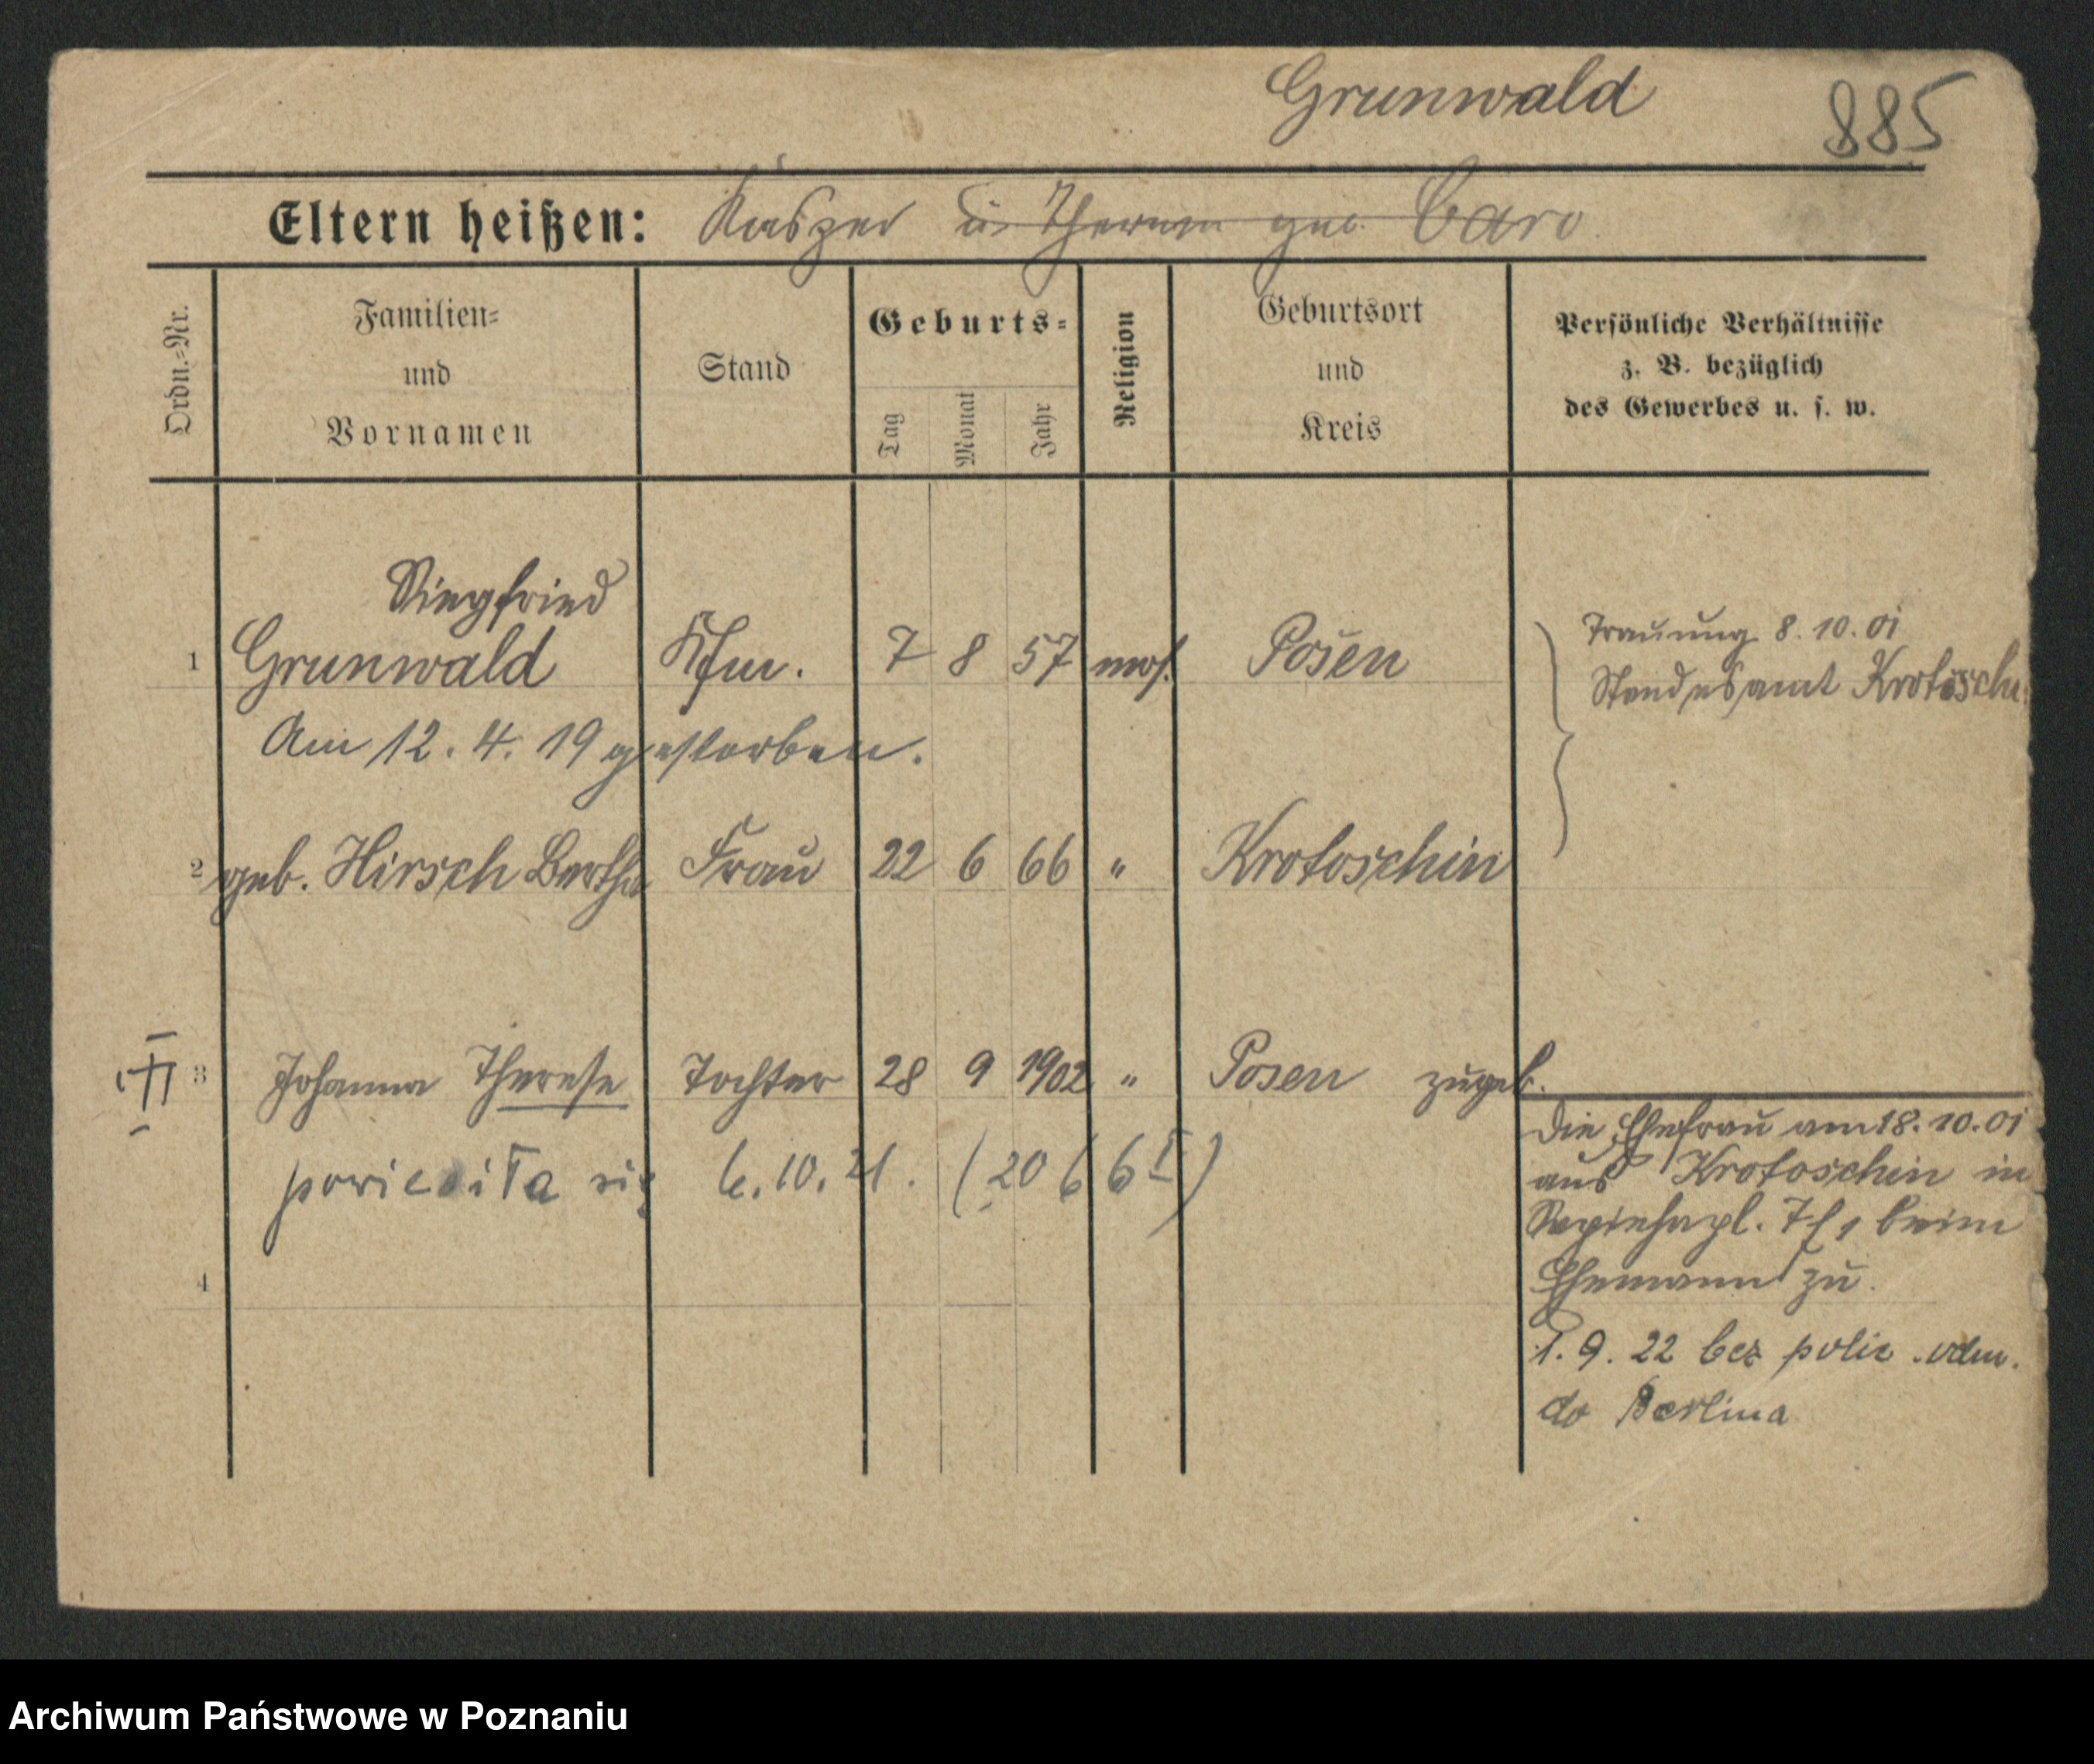 Grunwald
885
Eltern heißen: Kasper u. Therese geb. Caro
Ordn.=Nr.
Familien=
und
Vornamen
Stand
Geburts=
Tag
Monat
Jahr
Religion
Geburtsort
und
Kreis
Persönliche Verhältnisse
z. B. bezüglich
des Gewerbes u. s. w.
Siegfried
1 Grunwald Kfm. 7 8 57 mos. Posen
Trauung 8. 10. 01
Standesamt Krotosch
Am 12. 4. 19 gestorben.
2 geb. Hirsch Bertha Frau 22 6 66 " Krotoschin
3 Johanna Therese Tochter 28 9 1902 " Posen zugeb.
6. 10. 21. (2066 I)
4
Die Ehefrau am 18. 10. 01
aus Krotoschin in
Sapiehapl. beim
Ehemann zu.
1. 9. 22 bez polic. odm.
do Berlina
Archiwum Państwowe w Poznaniu